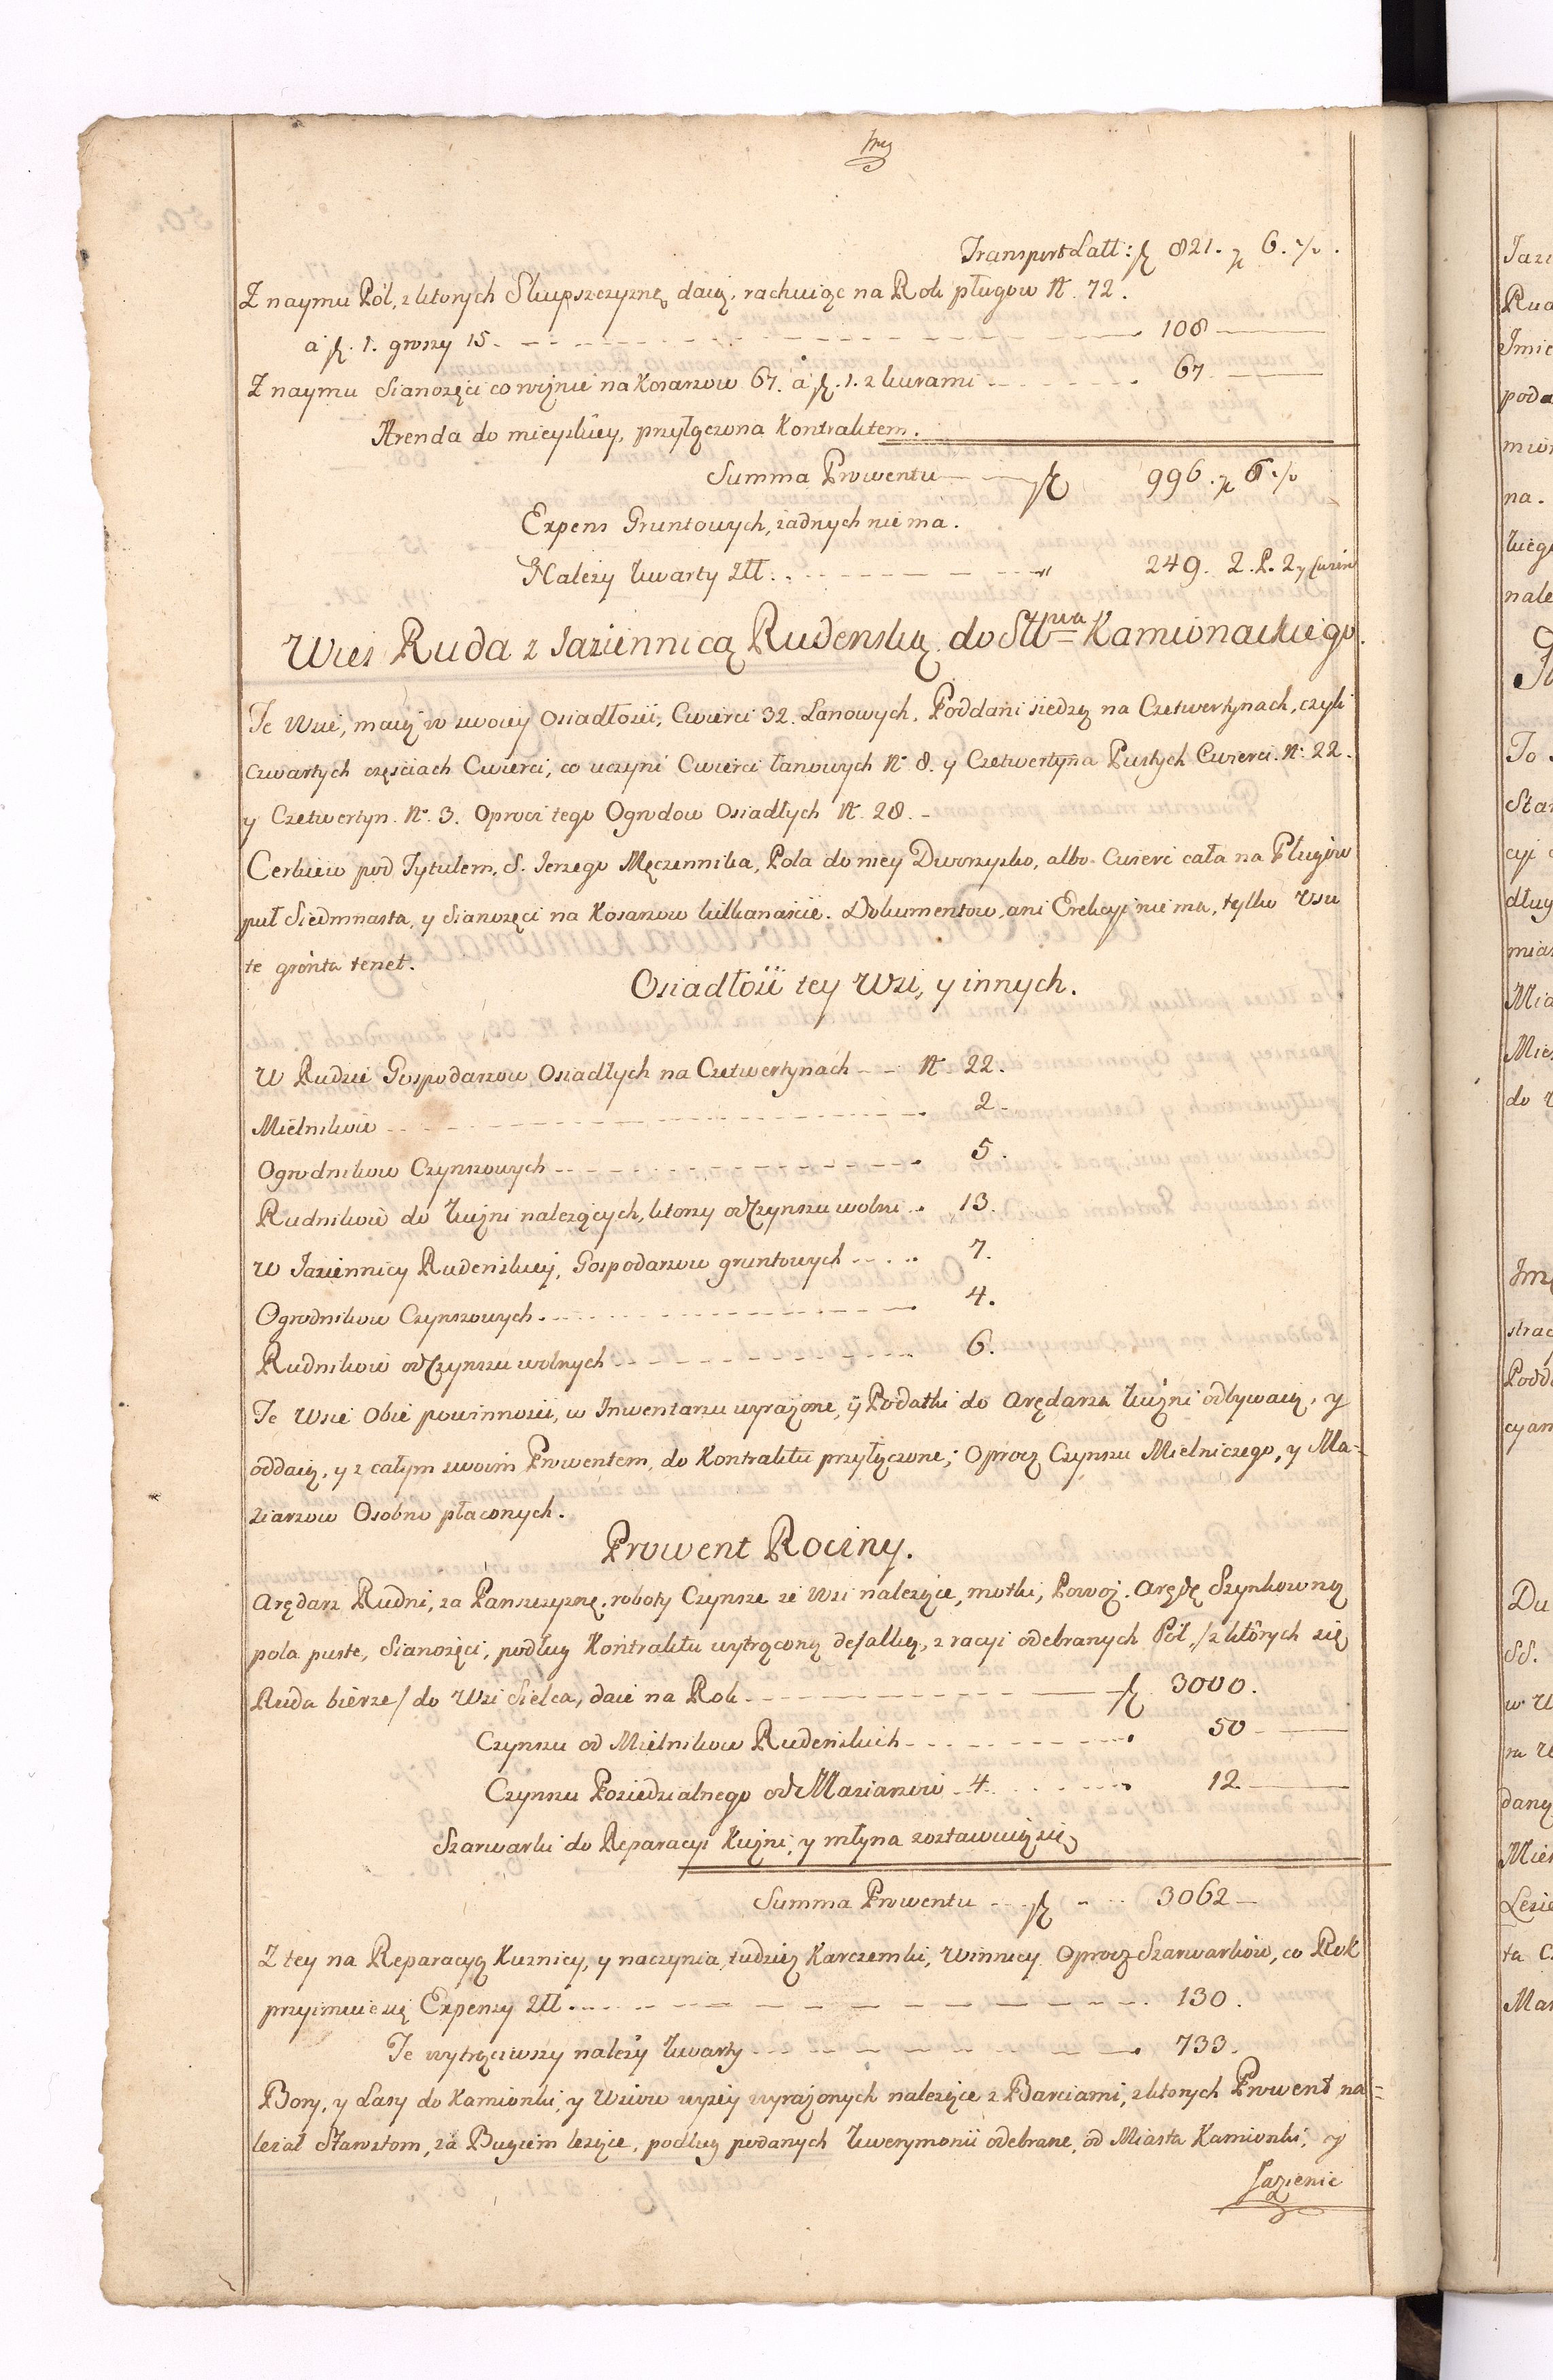 Transport Latt: fl 821. gr 6. ½.
Z naymu Pól, z ktorych Słupszczyznę daią, rachuiąc na Rok pługow N. 72.
á fl. 1. groszy 15. 108
Z naymu Sianożęci co wyżnie na Kosarzow 67. á fl. 1. z kurami 67
Arenda do mieyskiey, przyłączona Kontraktem.
Summa Prowentu fl 996. gr 6 ½
Expens Gruntowych, żadnych nie ma.
Należy kwarty Złł. 249. 2. P. 2
Wieś Ruda z Jaziennicą Rudenską do Sttwa Kamionackiego.
Te Wsie, maią w swoiey Osiadłości, Cwierci 32. Lanowych. Poddani siedzą na Czetwertynach, czyli
czwartych częściach Cwierci, co uczyni Cwierci łanowych N. 8. y Czetwertyna Pustych Cwierci. N. 22.
y Czetwertyn. N. 3. Oprocz tego Ogrodow Osiadłych N. 28.
Cerkiew pod Tytułem, S. Jerzego Męczennika, Pola do niey Dworzysko, albo Cwierć cała na Pługów
puł Siedmnasta, y Sianożęci na Kosarzow kilkanaście. Dokumentow, ani Erekcyi nie ma, tylko Usu
te gronta tenet.
Osiadłość tey Wsi, y innych.
W Rudzie Gospodarzow Osiadłych na Czetwertynach N. 22.
Mielnikow 2.
Ogrodnikow Czynszowych 5.
Rudnikow do kuźni należących, ktorzy od Czynszu wolni 13.
W Jaziennicy Rudenskiey, Gospodarzow gruntowych 7.
Ogrodnikow Czynszowych 4.
Rudnikow od Czynszu wolnych 6.
Te Wsie Obie powinności, w Inwentarzu wyrażone, y Podatki do Arędarza kuźni odbywaią, y
oddaią, y z całym swoim Prowentem, do Kontraktu przyłączone; Oprocz Czynszu Mielniczego, y Ma-
ziarzow Osobno płaconych.
Prowent Roczny.
Arędarz Rudni, za Panszczyznę, roboty Czynsze ze Wsi należące, motki, Powoz. Arędę Szynkowną
pola puste, Sianożęci, podług Kontraktu wytrąconą defalkę, z racyi odebranych Pól, /z ktorych się
Ruda bierze/ do Wsi Sielca, daie na Rok fl 3000.
Czynszu od Mielnikow Rudenskich 50
Czynszu Posiedzialnego od Maziarzow 4. 12
Szarwarki do Reparacyi Kuźni, y młyna zostawuią się
Summa Prowentu fl 3062
Z tey na Reparacyą Kuznicy, y naczynia, tudzież Karczemki, Winnicy Oprocz Szarwarków, co Rok
przyimuie się Expensy Złł. 130.
Te wytrąciwszy należy kwarty 733.
Bory, y Lasy do Kamionki, y Wsiow wyżey wyrażonych należące z Barciami, z ktorych Prowent na-
leżał Starostom, za Bugiem leżące, podług podanych kwerymonii odebrane, od Miasta Kamionki, y
Jazienic